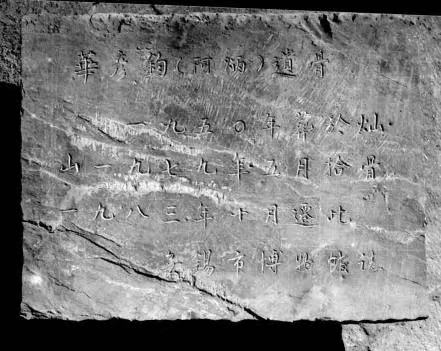 華彦鈞(阿炳)遺骨
一九五〇年葬於灿
山一九七九年五月拾骨
一九八三年十月遷此
無錫市博物馆誌